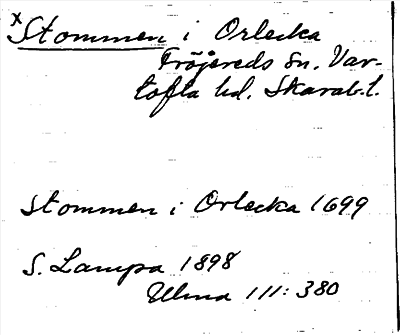 x Stommen i Orlecka
Fröjereds sn. Var-
tofta hd. Skarab.l.
Stommen i Orlecka 1699
S. Lampa 1898
Ulma 111: 380